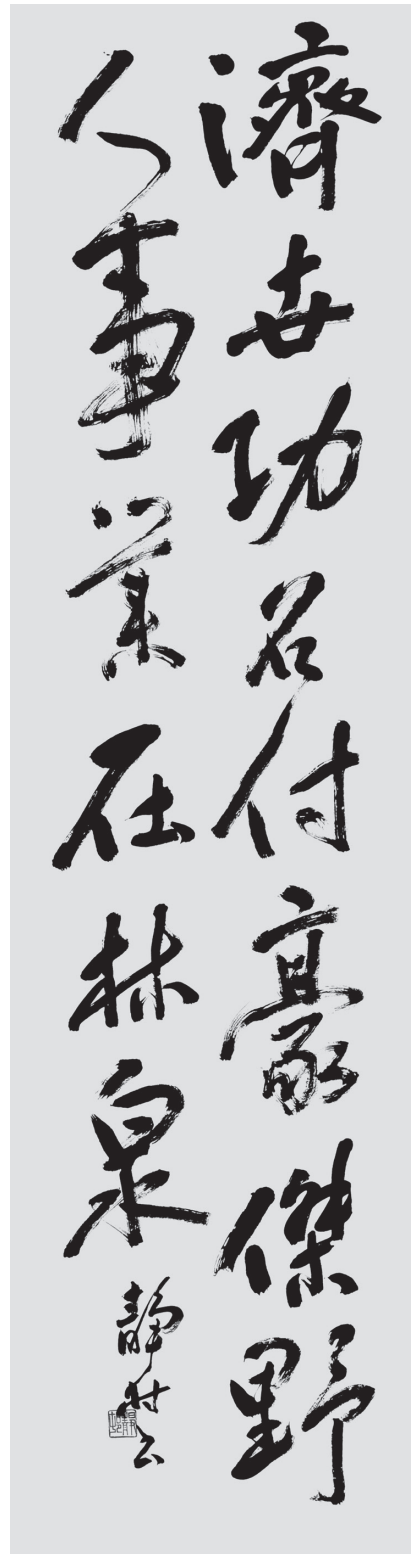 濟世功名付豪傑野
人事業在林泉
靜